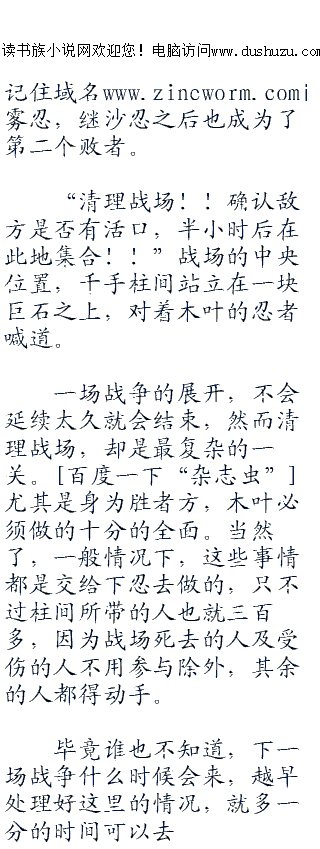 读书族小说网欢迎您！电脑访问www.dushuzu.com
记住域名www.zincworm.comi
雾忍，继沙忍之后也成为了
第二个败者。
“清理战场！！确认敌
方是否有活口，半小时后在
此地集合！！”战场的中央
位置，千手柱间站立在一块
巨石之上，对着木叶的忍者
喊道。
一场战争的展开，不会
延续太久就会结束，然而清
理战场，却是最复杂的一
关。[百度一下“杂志虫”]
尤其是身为胜者方，木叶必
须做的十分的全面。当然
了，一般情况下，这些事情
都是交给下忍去做的，只不
过柱间所带的人也就三百
多，因为战场死去的人及受
伤的人不用参与除外，其余
的人都得动手。
毕竟谁也不知道，下一
场战争什么时候会来，越早
处理好这里的情况，就多一
分的时间可以去